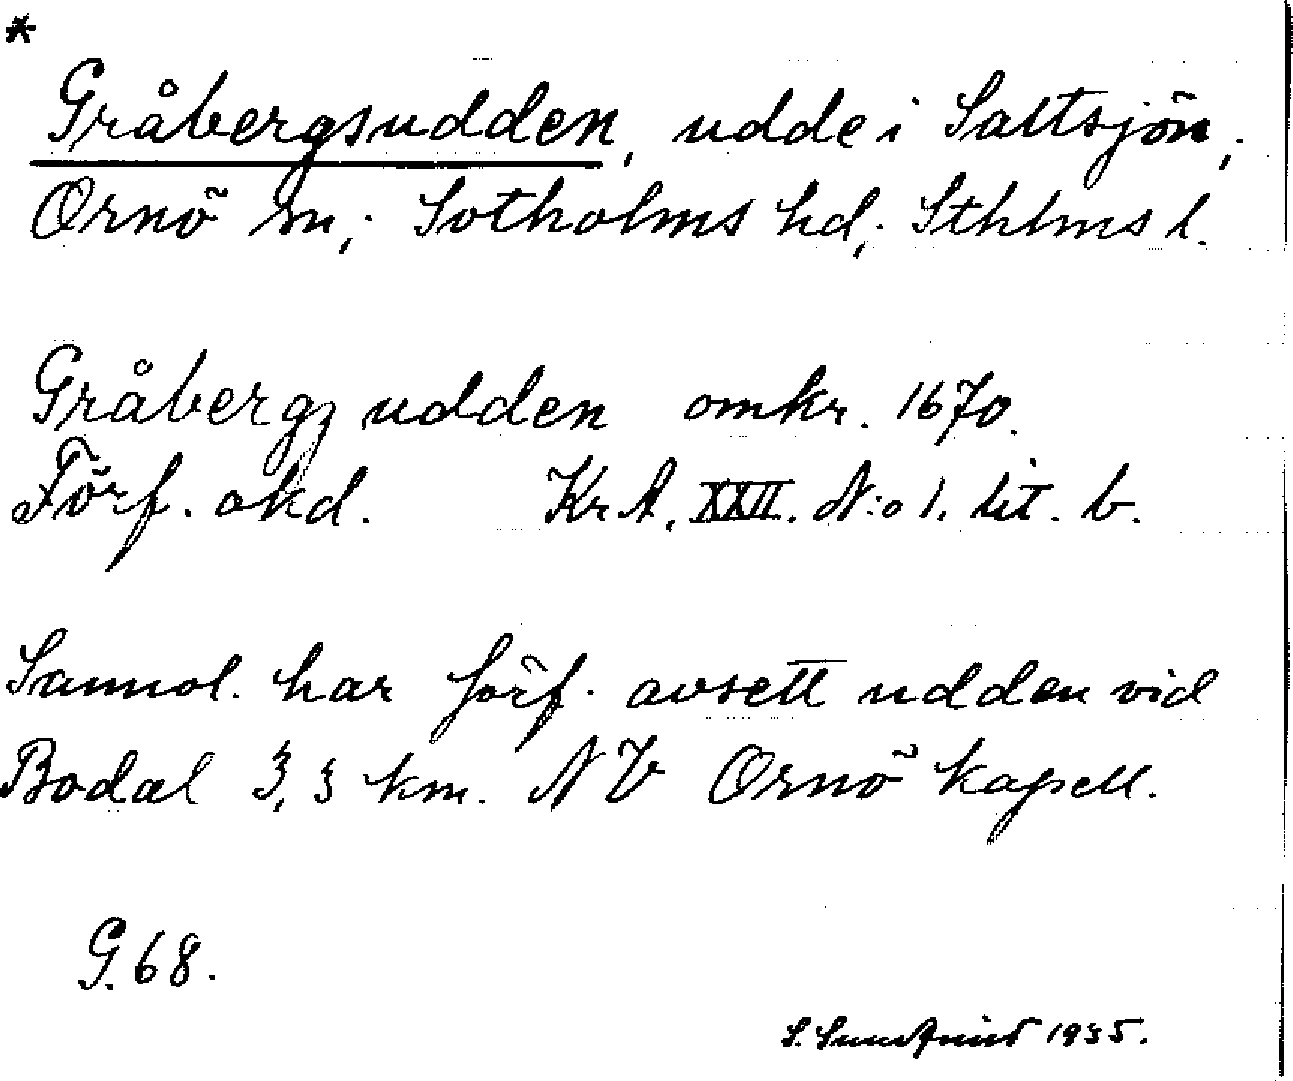 *
Gråbergsudden, udde i Saltsjön,
Ornö sn; Sotholms hd; Sthlms l.
Gråbergz udden omkr. 1670.
Förf. okd. KrA. XXII. N:o 1. lit. b.
Sannol. har förf. avsett udden vid
Bodal 3,3 km. NV Ornö kapell.
G. 68.
S. Sundqvist 1935.